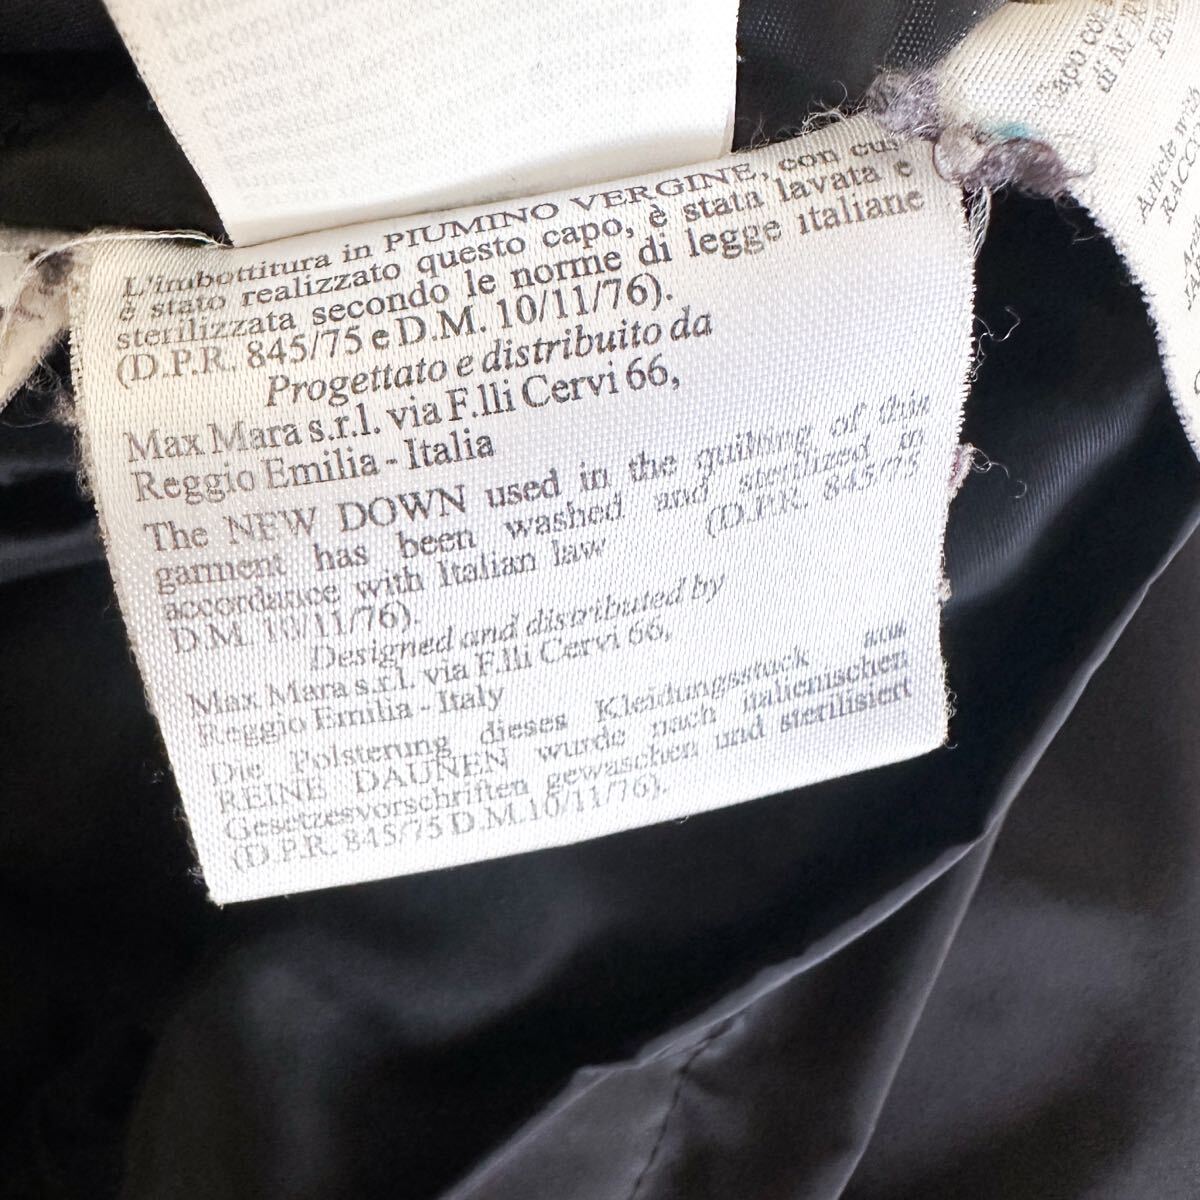 L'imbottitura in PIUMINO VERGINE, con cui
è stato realizzato questo capo, è stata lavata e
sterilizzata secondo le norme di legge italiane
(D.P.R. 845/75 e D.M. 10/11/76).
Progettato e distribuito da
Max Mara s.r.l. via F.lli Cervi 66,
Reggio Emilia - Italia
The NEW DOWN used in the quilting of this
garment has been washed and sterilized in
accordance with Italian law (D.P.R. 845/75
D.M. 10/11/76).
Designed and distributed by
Max Mara s.r.l. via F.lli Cervi 66,
Reggio Emilia - Italy
Die Polsterung dieses Kleidungsstück aus
REINE DAUNEN wurde nach italienischen
Gesetzesvorschriften gewaschen und sterilisiert
(D.P.R. 845/75 D.M. 10/11/76).
Capo
di M
Article with